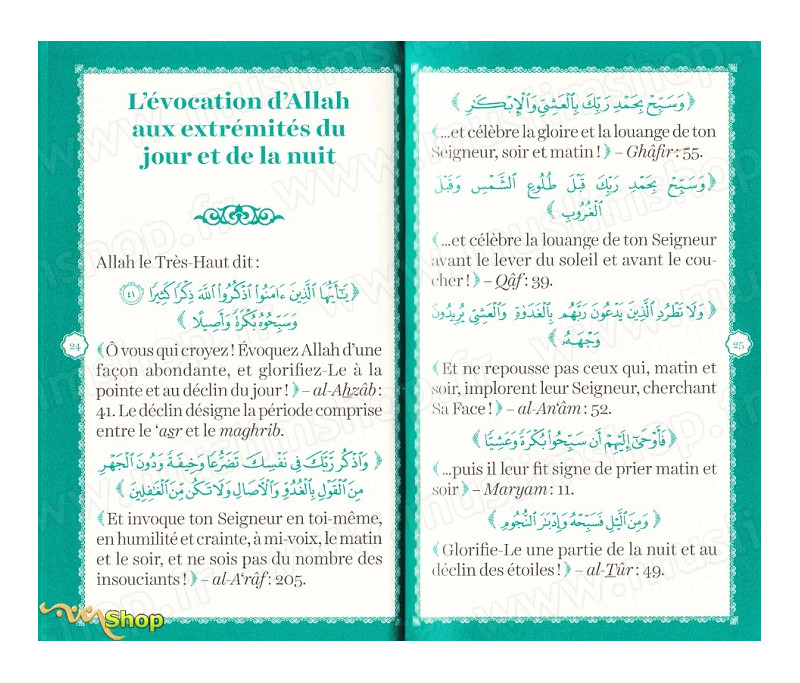 L'évocation d'Allah
aux extrémités du
jour et de la nuit
Allah le Très-Haut dit :
﴿ يَـٰٓأَيُّهَا ٱلَّذِينَ ءَامَنُوا۟ ٱذْكُرُوا۟ ٱللَّهَ ذِكْرًا كَثِيرًا ٤١
وَسَبِّحُوهُ بُكْرَةً وَأَصِيلًا ﴾
﴾Ô vous qui croyez ! Évoquez Allah d'une
façon abondante, et glorifiez-Le à la
pointe et au déclin du jour ! ﴿ – al-Ahzâb :
41. Le déclin désigne la période comprise
entre le ‘asr et le maghrib.
﴿ وَٱذْكُر رَّبَّكَ فِى نَفْسِكَ تَضَرُّعًا وَخِيفَةً وَدُونَ ٱلْجَهْرِ
مِنَ ٱلْقَوْلِ بِٱلْغُدُوِّ وَٱلْـَٔاصَالِ وَلَا تَكُن مِّنَ ٱلْغَـٰفِلِينَ ﴾
﴾Et invoque ton Seigneur en toi-même,
en humilité et crainte, à mi-voix, le matin
et le soir, et ne sois pas du nombre des
insouciants ! ﴿ – al-A‘râf : 205.
24
﴿ وَسَبِّحْ بِحَمْدِ رَبِّكَ بِٱلْعَشِىِّ وَٱلْإِبْكَـٰرِ ﴾
﴾...et célèbre la gloire et la louange de ton
Seigneur, soir et matin ! ﴿ – Ghâfir : 55.
﴿ وَسَبِّحْ بِحَمْدِ رَبِّكَ قَبْلَ طُلُوعِ ٱلشَّمْسِ وَقَبْلَ
ٱلْغُرُوبِ ﴾
﴾...et célèbre la louange de ton Seigneur
avant le lever du soleil et avant le cou-
cher ! ﴿ – Qâf : 39.
﴿ وَلَا تَطْرُدِ ٱلَّذِينَ يَدْعُونَ رَبَّهُم بِٱلْغَدَوٰةِ وَٱلْعَشِىِّ يُرِيدُونَ
وَجْهَهُۥ ﴾
﴾Et ne repousse pas ceux qui, matin et
soir, implorent leur Seigneur, cherchant
Sa Face ! ﴿ – al-An‘âm : 52.
﴿ فَأَوْحَىٰٓ إِلَيْهِمْ أَن سَبِّحُوا۟ بُكْرَةً وَعَشِيًّا ﴾
﴾...puis il leur fit signe de prier matin et
soir ﴿ – Maryam : 11.
﴿ وَمِنَ ٱلَّيْلِ فَسَبِّحْهُ وَإِدْبَـٰرَ ٱلنُّجُومِ ﴾
﴾Glorifie-Le une partie de la nuit et au
déclin des étoiles ! ﴿ – al-Tûr : 49.
25
Shop
www.muslimshop.fr